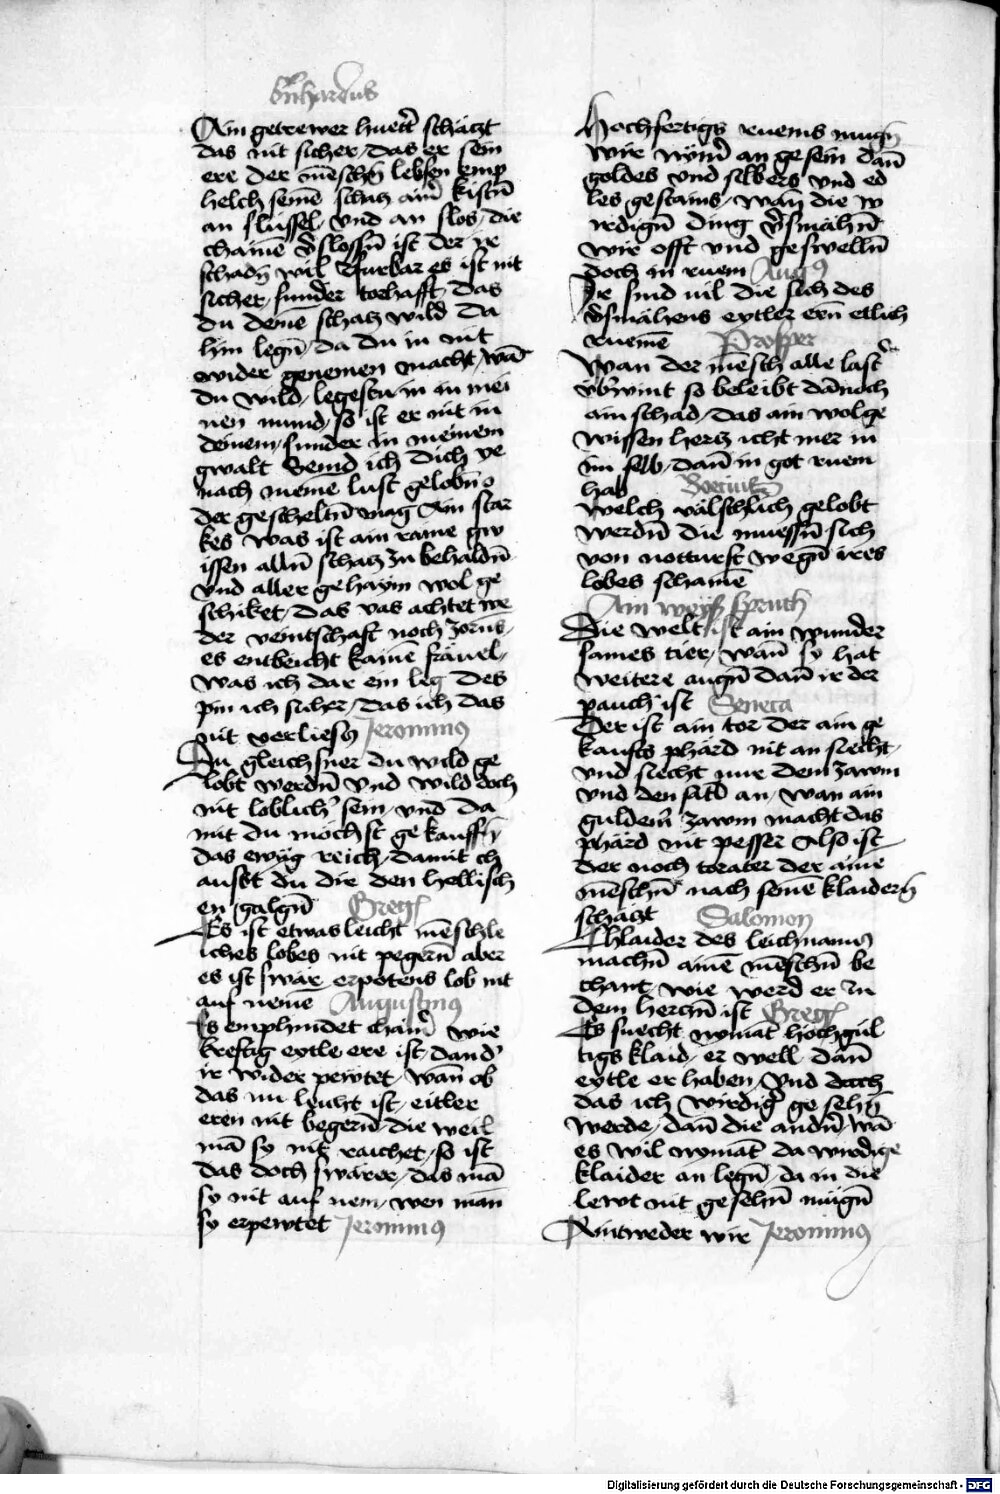 Bernhardus
Ain getrewer huett̄ schäczt
das nit sicher / das er sein
ere der mēschn̄ lebsen emp
helch seinē schacz ainē kistn̄
an slüssel / vnd an slos / die
chainē v̄slossn̄ ist der ir
schadn̄ wil Furbar es ist nit
sicher / sunder torhafft / das
du deinē schacz wild da
hin legn̄ / da du in nit
wider genemen macht / wān
du wild / legestu in in mei
nen mund / so ist er nit in
deinem / sunder in meinem
gwalt Semd ich dich ye
nach meinē lust gelobn̄ o
der gescheltn̄ mag Ain star
kes was ist ain raine gw
issen alln̄ schacz zu behaldn̄
vnd aller gehaym wol ge
schiket / das vas achtet we
der veintschaft noch zorns /
es entbeicht kainē fräuel /
was ich dar ein leg des
pin ich sicher / das ich das
nit verliesz Jeronimus
Du gleichsner du wild ge
lobt werdn̄ vnd wild doch
nit loblich sein / vnd da
mit du möchst gekauffn̄
das ewig reich / damit ch
aufst du die den hellisch
en galgn̄ Greg
Es ist etwas leicht mēschle
iches lobes nit pegern̄ aber
es ist swär erpotens lob nit
auf nemē Augustinus
Es emphindet chainʼ wie
kreftig eytle ere ist / dand
ir wider pewtet / wān ob
das nu leicht ist / eitler
eren nit begern̄ / die weil
mā sy nit raichet / so ist
das doch swärer / das mā
sy nit auf nem / wen man
sy erpewtet Jeronimus
Hochfertigs ruems mugn̄
wir nymʼ an gesein dan̄
goldes vnd silbers vnd ed
les gestains / wan̄ die w
irdign̄ ding v̄smähn̄
wir offt vnd geswelln̄
doch in ruem Augꝰ
Ir sind vil die sich des
v̄smähens eytler ern̄ etlich
ruemē Prosper
Wan der mēsch alle last
vb̓wint so beleibt dānoch
ain schad / das ain wolge
wissen hercz icht mer in
im selb / dan̄ in got ruem
hab Boecius
Welch välschlich gelobt
werdn̄ die muessn̄ sich
von notturft wegn̄ ires
lobes schamē
Ain weysz spruch
Die welt ist ain wunder
sames tier / wan̄ sy hat
weitere augn̄ dan̄ ir der
pauch ist Seneca
Der ist ain tor der ain ge
kaufts phärd nit an siecht /
vnd siecht nur dem zawm
vnd den satl an / wan ain
guldein̄ zawm macht das
phärd nit pesser Also ist
der noch torater der aine
mēschn̄ nach seinē klaidern̄
schäczt Salomon
Chlaider des leichnams
machn̄ ainē mēschn̄ be
chant / wie werd er in
dem herczn̄ ist Greg
Es suecht nymāt hochgül
tigs klaid / er well dan̄
eytle er haben / vnd durch
das ich wirdigʼ gesehn̄
werde / dan̄ die andn̄ / wā
es wil nymāt da wirdige
klaider an legn̄ / da in die
lewt nit gesehn̄ mügn̄
Aintweder wir Jeronimus
Digitalisierung gefördert durch die Deutsche Forschungsgemeinschaft - DFG